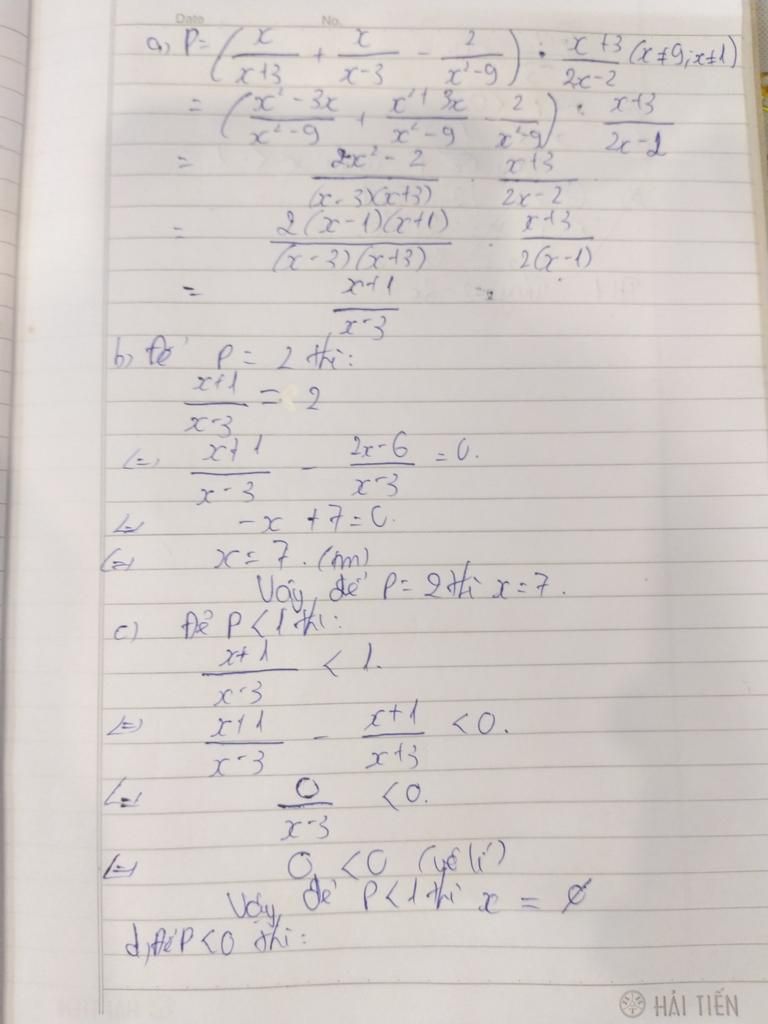 Date No.
a, P = (x/(x+3) + x/(x-3) - 2/(x²-9)) : (x+3)/(2x-2) (x≠9; x≠1)
= ((x²-3x)/(x²-9) + (x²+3x)/(x²-9) - 2/(x²-9)) · (x+3)/(2x-2)
= (2x²-2)/((x-3)(x+3)) · (x+3)/(2x-2)
= 2(x-1)(x+1)/((x-3)(x+3)) · (x+3)/(2(x-1))
= (x+1)/(x-3)
b, Để P = 2 thì:
(x+1)/(x-3) = 2
(=) (x+1)/(x-3) - (2x-6)/(x-3) = 0.
(=) -x + 7 = 0.
(=) x = 7. (tm)
Vậy để P = 2 thì x = 7.
c) Để P < 1 thì:
(x+1)/(x-3) < 1.
(=) (x+1)/(x-3) - (x+1)/(x+3) < 0.
(=) 0/(x-3) < 0.
(=) 0 < 0 (vô lí)
Vậy để P < 1 thì x = ∅
d, Để P < 0 thì:
HẢI TIẾN